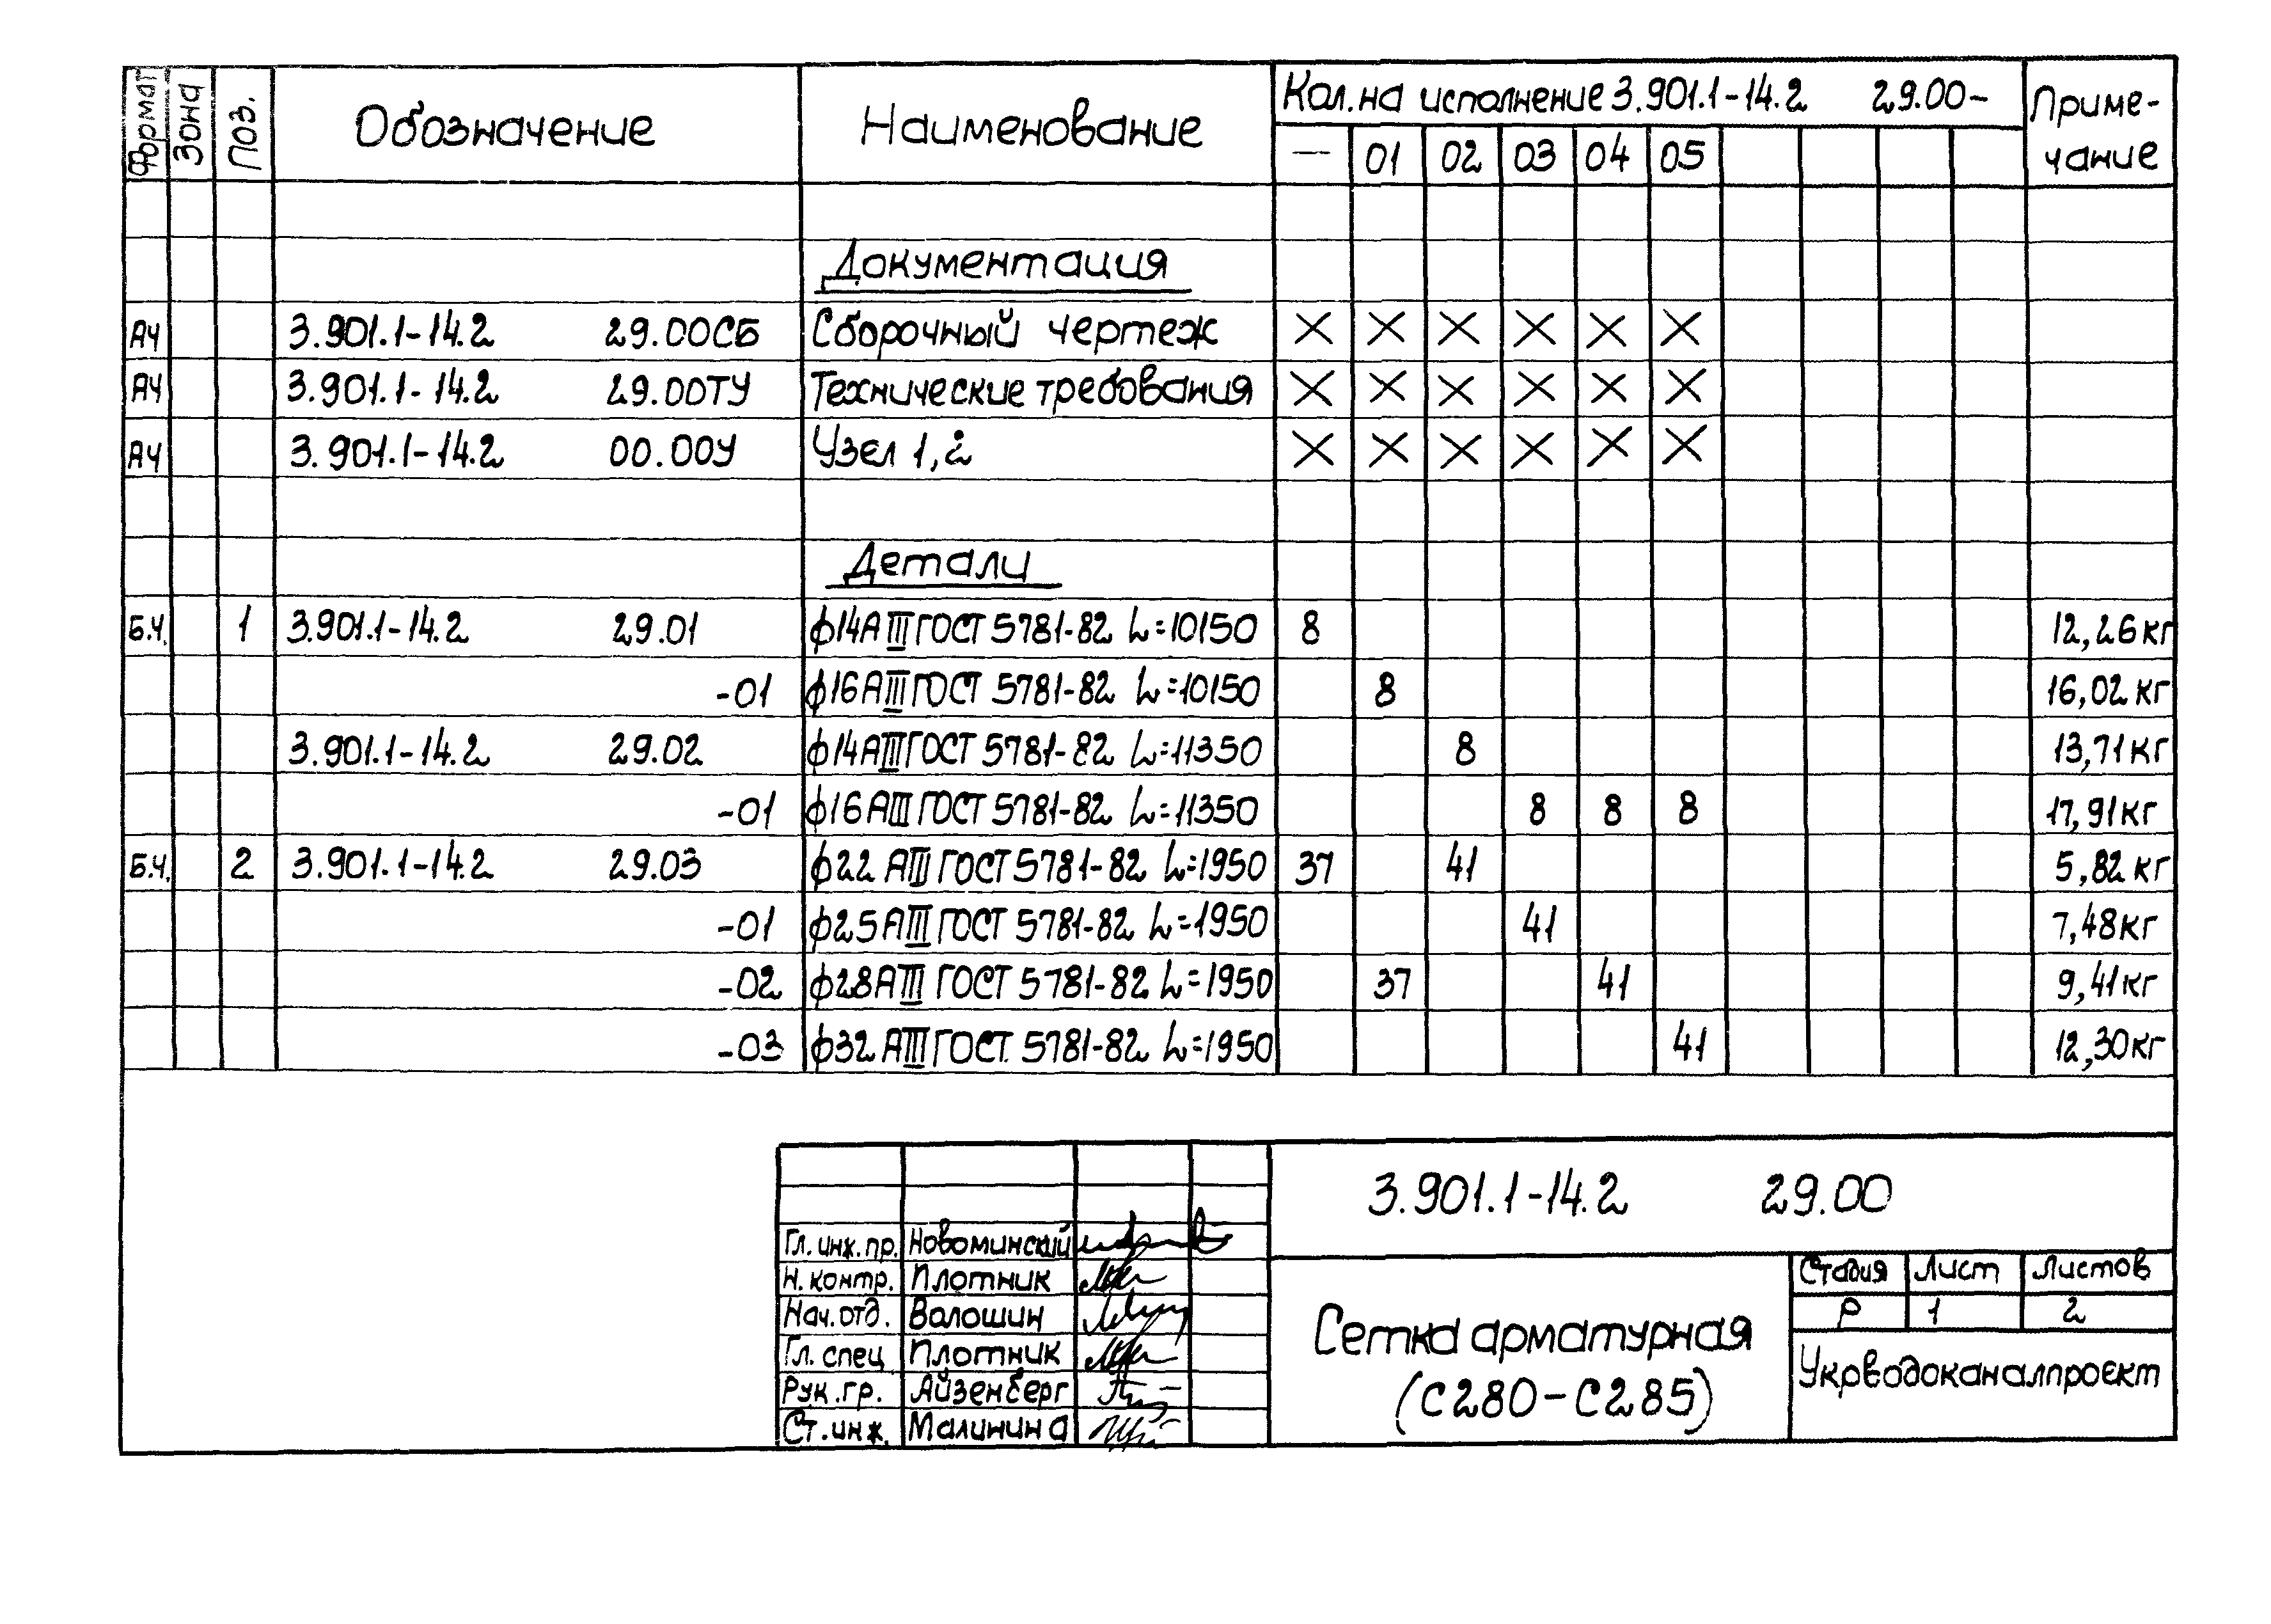 Формат Зона Поз. Обозначение Наименование Кол. на исполнение 3.901.1-14.2 29.00- Приме-
чание
— 01 02 03 04 05
Документация
А4 3.901.1-14.2 29.00СБ Сборочный чертеж X X X X X X
А4 3.901.1-14.2 29.00ТУ Технические требования X X X X X X
А4 3.901.1-14.2 00.00У Узел 1,2 X X X X X X
Детали
Б.Ч. 1 3.901.1-14.2 29.01 ф14АIII ГОСТ 5781-82 L=10150 8 12,26кг
-01 ф16АIII ГОСТ 5781-82 L=10150 8 16,02кг
3.901.1-14.2 29.02 ф14АIII ГОСТ 5781-82 L=11350 8 13,71кг
-01 ф16АIII ГОСТ 5781-82 L=11350 8 8 8 17,91кг
Б.Ч. 2 3.901.1-14.2 29.03 ф22 АIII ГОСТ 5781-82 L=1950 37 41 5,82 кг
-01 ф25АIII ГОСТ 5781-82 L=1950 41 7,48кг
-02 ф28АIII ГОСТ 5781-82 L=1950 37 41 9,41кг
-03 ф32АIII ГОСТ. 5781-82 L=1950 41 12,30кг
3.901.1-14.2 29.00
Гл. инж. пр. Новоминский
Н. контр. Плотник
Нач. отд. Волошин
Гл. спец Плотник
Рук. гр. Айзенберг
Ст. инж. Малинина
Сетка арматурная
(С280-С285)
Стадия Лист Листов
Р 1 2
Укрводоканалпроект